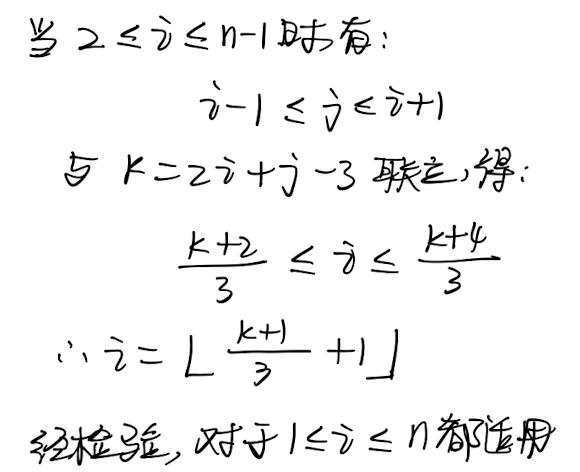 当 2 ≤ i ≤ n-1 时,有:
i-1 ≤ j ≤ i+1
与 k=2i+j-3 联立,得:
\frac{k+2}{3} ≤ i ≤ \frac{k+4}{3}
∴ i = ⌊ \frac{k+1}{3} +1 ⌋
经检验, 对于 1 ≤ i ≤ n 都适用